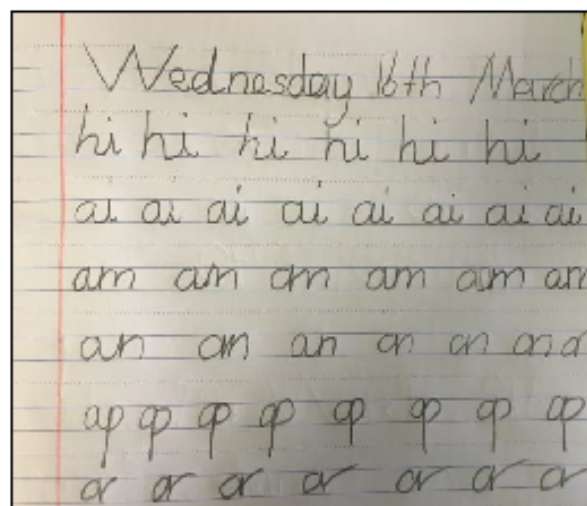 Wednesday 16th March
hi hi hi hi hi hi
ai ai ai ai ai ai ai ai
am am am am am am
an an an an an an a
ap ap ap ap ap ap ap ap
ar ar ar ar ar ar ar